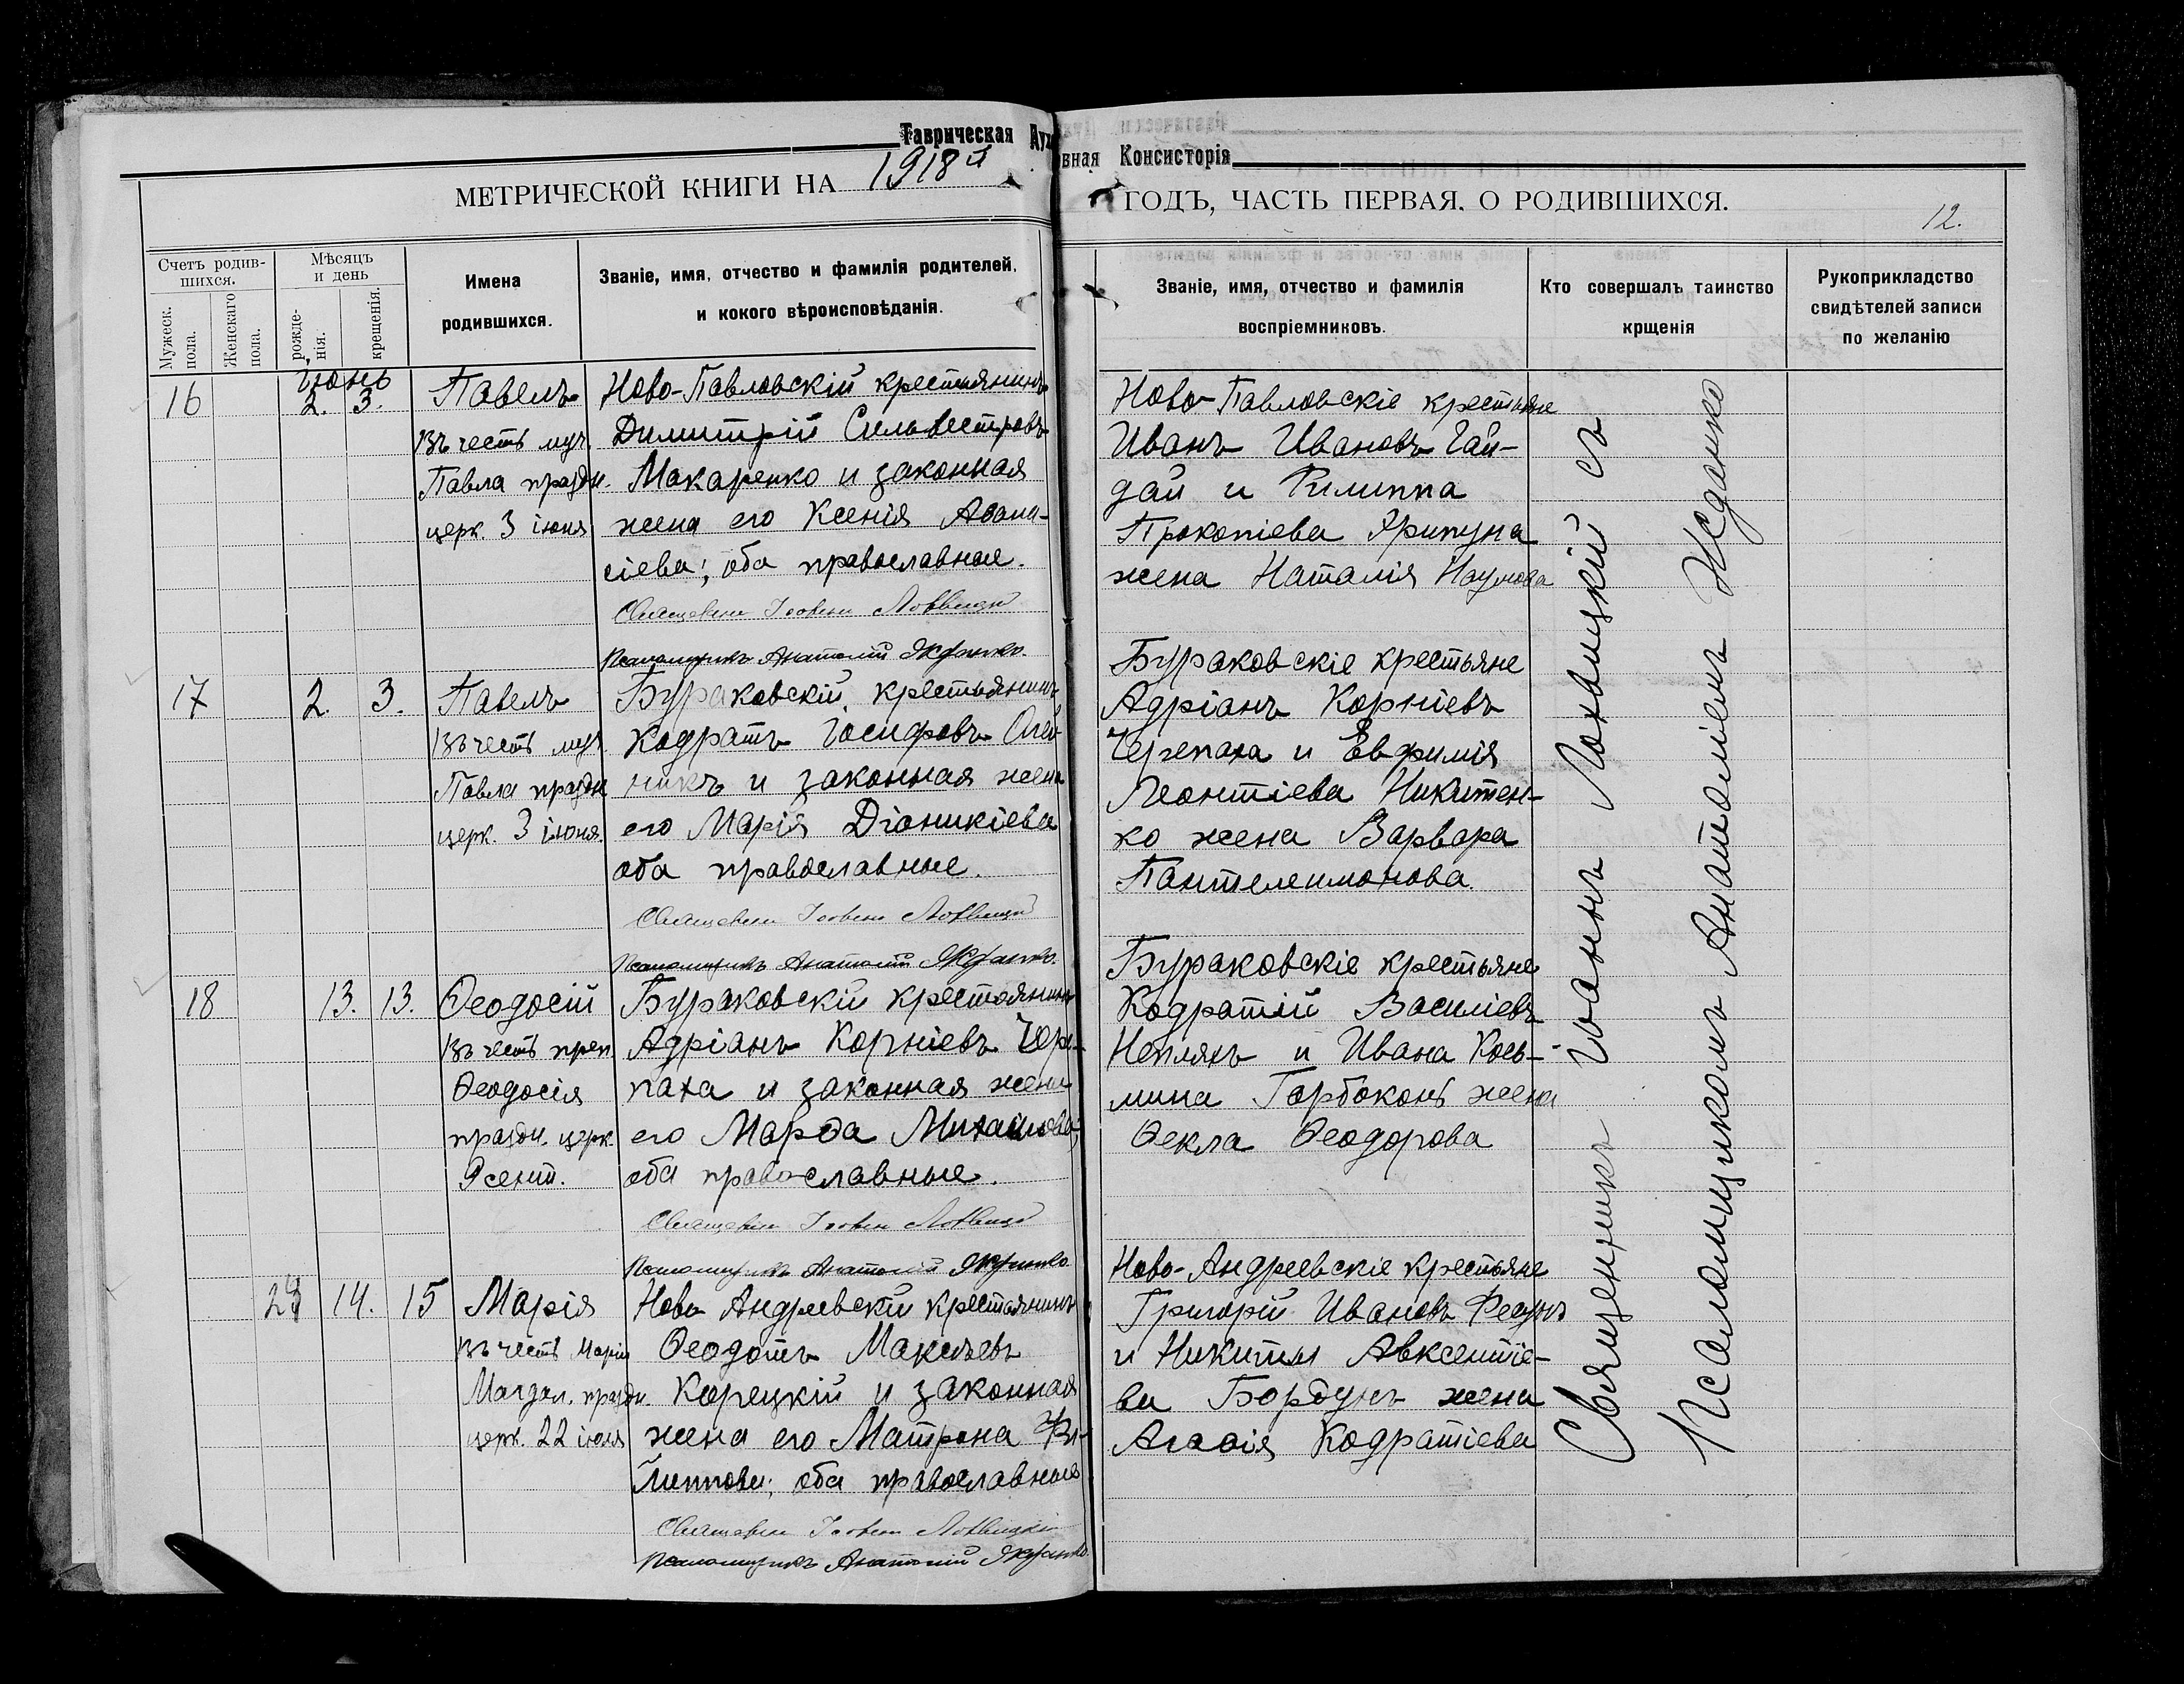 Таврическая Духовная Консисторія
МЕТРИЧЕСКОЙ КНИГИ НА 1918й ГОДЪ, ЧАСТЬ ПЕРВАЯ, О РОДИВШИХСЯ.
12.
Счетъ родившихся.
Мужеск. пола.
Женскаго пола.
Мѣсяцъ и день
рожденія.
крещенія.
Имена родившихся.
Званіе, имя, отчество и фамилія родителей,
и кокого вѣроисповѣданія.
Званіе, имя, отчество и фамилія
воспріемниковъ.
Кто совершалъ таинство
крщенія
Рукоприкладство
свидѣтелей записи
по желанію
Іюнь
16 2. 3.
Павелъ
Въ честь муч.
Павла праздн.
церк. 3 іюня
Ново-Павловскій крестьянинъ
Димитрій Сильвестровъ
Макаренко и законная
жена его Ксенія Аѳана-
сіева; оба православные.
Псаломщикъ Анатолій
Ново-Павловскіе крестьяне
Иванъ Ивановъ Гай-
дай и Филиппа
Прокопіева Хрипуна
жена Наталія Наумова
17 2. 3.
Павелъ
Въ честь муч.
Павла праздн.
церк. 3 іюня.
Бураковскій крестьянинъ
Кодратъ Іосифовъ Олей-
никъ и законная жена
его Марія Діоникіева
оба православные.
Псаломщикъ Анатолій
Бураковскіе крестьяне
Адріанъ Корніевъ
Черепаха и Евфимія
Леонтіева Никитен-
ко жена Варвара
Пантелеимонова.
18 13. 13.
Ѳеодосій
Въ честь преп.
Ѳеодосія
праздн. церк.
Бураковскій крестьянинъ
Адріанъ Корніевъ Чере-
паха и законная жена
его Марѳа Михайлова;
оба православные.
Псаломщикъ Анатолій
Бураковскіе крестьяне
Кодратій Василіевъ
Непляхъ и Ивана Косъ-
мина Горбоконь жена
Ѳекла Ѳеодорова
14. 15
Марія
Въ честь Маріи
Магдал. праздн.
церк. 22 іюля
Ново Андреевскій крестьянинъ
Ѳеодотъ
Корецкій и законная
жена его Матрона Фи-
липпова; оба православные
Псаломщикъ Анатолій
Ново-Андреевскіе крестьяне
Григорій Ивановъ
и Никиты Авксентіе-
ва Бордунъ жена
Агаѳія Кодратіева
Священникъ Іоаннъ Лохвицкій съ
Псаломщикомъ Анатоліемъ Жданко